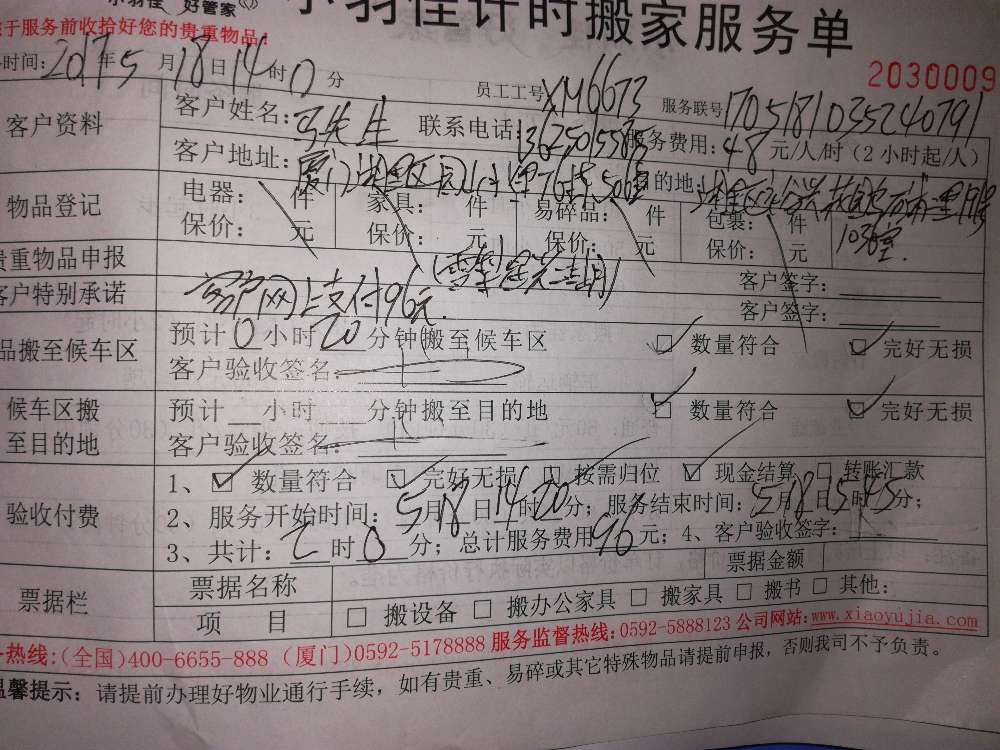 小羽佳 好管家
小羽佳计时搬家服务单
于服务前收拾好您的贵重物品!
2030009
时间: 2017年5月18日14时0分 员工工号XM6673 服务联号1705181035240791
客户资料 客户姓名: 联系电话: 服务费用: 48元/人/时 (2小时起/人)
客户地址: 的地:
103室
物品登记 电器: 件 家具: 件 易碎品: 件 包裹: 件
保价: 元 保价: 元 保价: 元 保价: 元
贵重物品申报 客户签字:
客户特别承诺 客户网上支付96元. 客户签字:
品搬至候车区 预计0小时20分钟搬至候车区 ☑ 数量符合 ☑ 完好无损
客户验收签名:
候车区搬至目的地 预计 小时 分钟搬至目的地 ☑ 数量符合 ☑ 完好无损
客户验收签名:
验收付费 1、☑ 数量符合 ☑ 完好无损 ☑ 按需归位 ☑ 现金结算 □ 转账汇款
2、服务开始时间: 5月18日14时20分; 服务结束时间: 5月18日15时45分;
3、共计: 2时0分; 总计服务费用96元; 4、客户验收签字:
票据栏 票据名称 票据金额
项 目 □ 搬设备 □ 搬办公家具 □ 搬家具 □ 搬书 □ 其他:
热线:(全国)400-6655-888 (厦门)0592-5178888 服务监督热线:0592-5888123 公司网站:www.xiaoyujia.com
温馨提示: 请提前办理好物业通行手续, 如有贵重、易碎或其它特殊物品请提前申报, 否则我司不予负责。